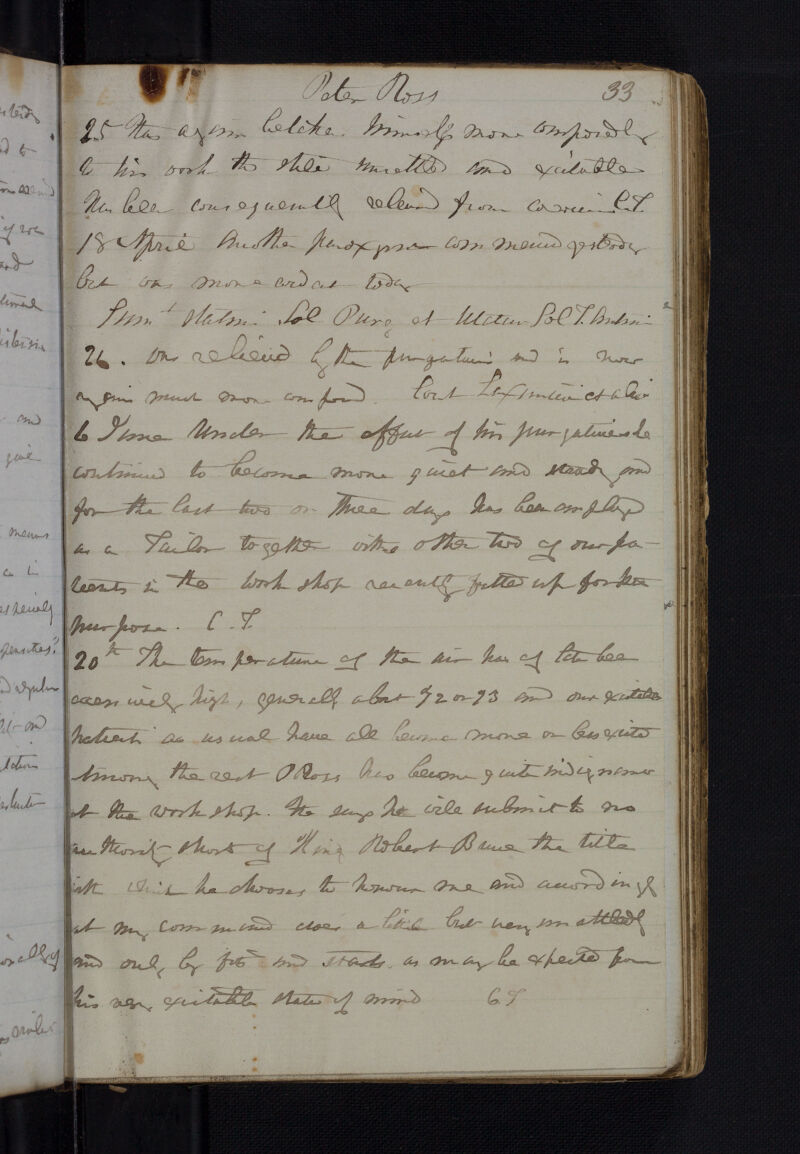 Peter Ross 33
25 Has again betaken himself more composedly
to his work tho still unsettled and excitable
Has been consequently relieved from C.T.
18 April Another paroxysm commenced yesterday
but was more ardent today
Sumt statim Sol Purg et Sol T.
26. Was relieved by the purgatives and is now
again much more composed. Cont Laxantia
6 June Under the effect of his purgatives he
continued to become more quiet and steady and
for the last two or three days has been employed
as a Tailor together with other two of our pa-
tients in the work shop recently fitted up for the
purpose. C.T.
20th The temperature of the air has of late been
excessively high, generally about 72 or 73 and our excitable
patients as usual have all become more or less excited
Among the rest P Ross has become quite indignant
at the work shop. He says he will submit to no
authority short of King Robert Bruce the title
with which he chooses to honour me and accordingly
at my command does a little but very unsettledly
and only by fits and starts as may be expected from
his very excitable state of mind CT